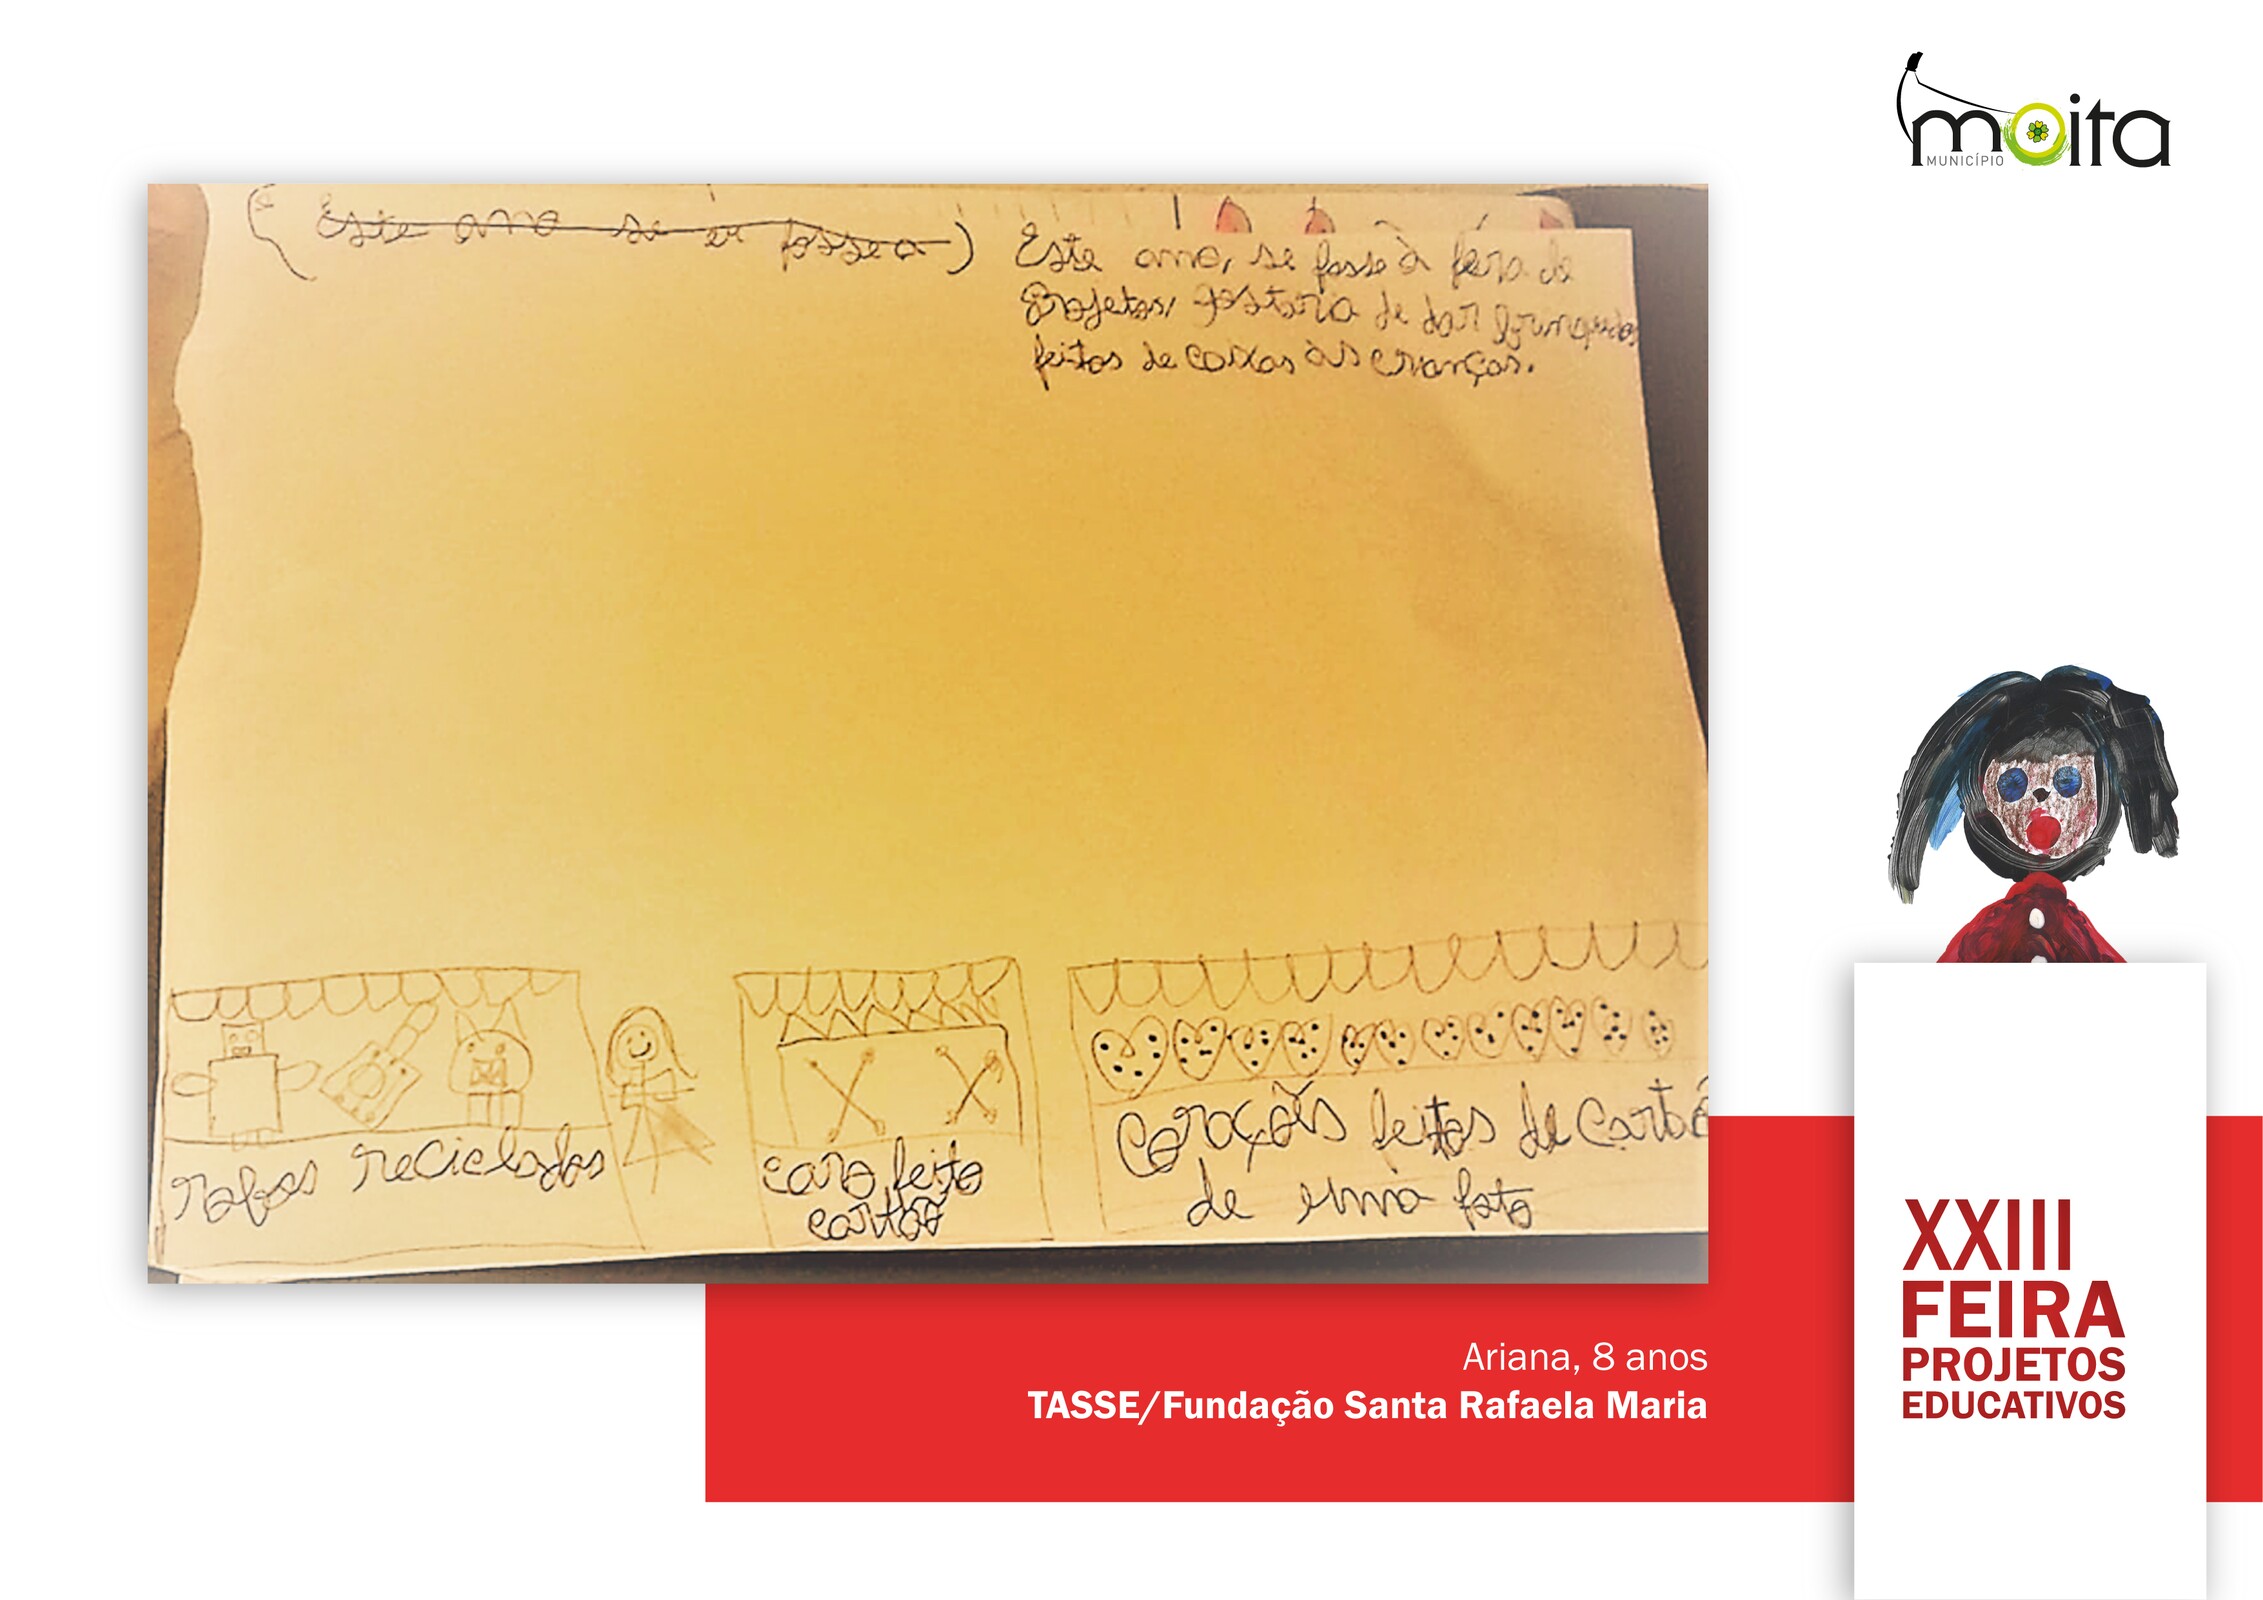 moita
MUNICÍPIO
(Este ano se eu fosse a)
Este ano, se fosse à feira de
Projetos, gostaria de dar brinquedos
feitos de caixas às crianças.
reciclados
feito
cartão
feitos de cartão
de uma
XXIII
FEIRA
PROJETOS
EDUCATIVOS
Ariana, 8 anos
TASSE/Fundação Santa Rafaela Maria